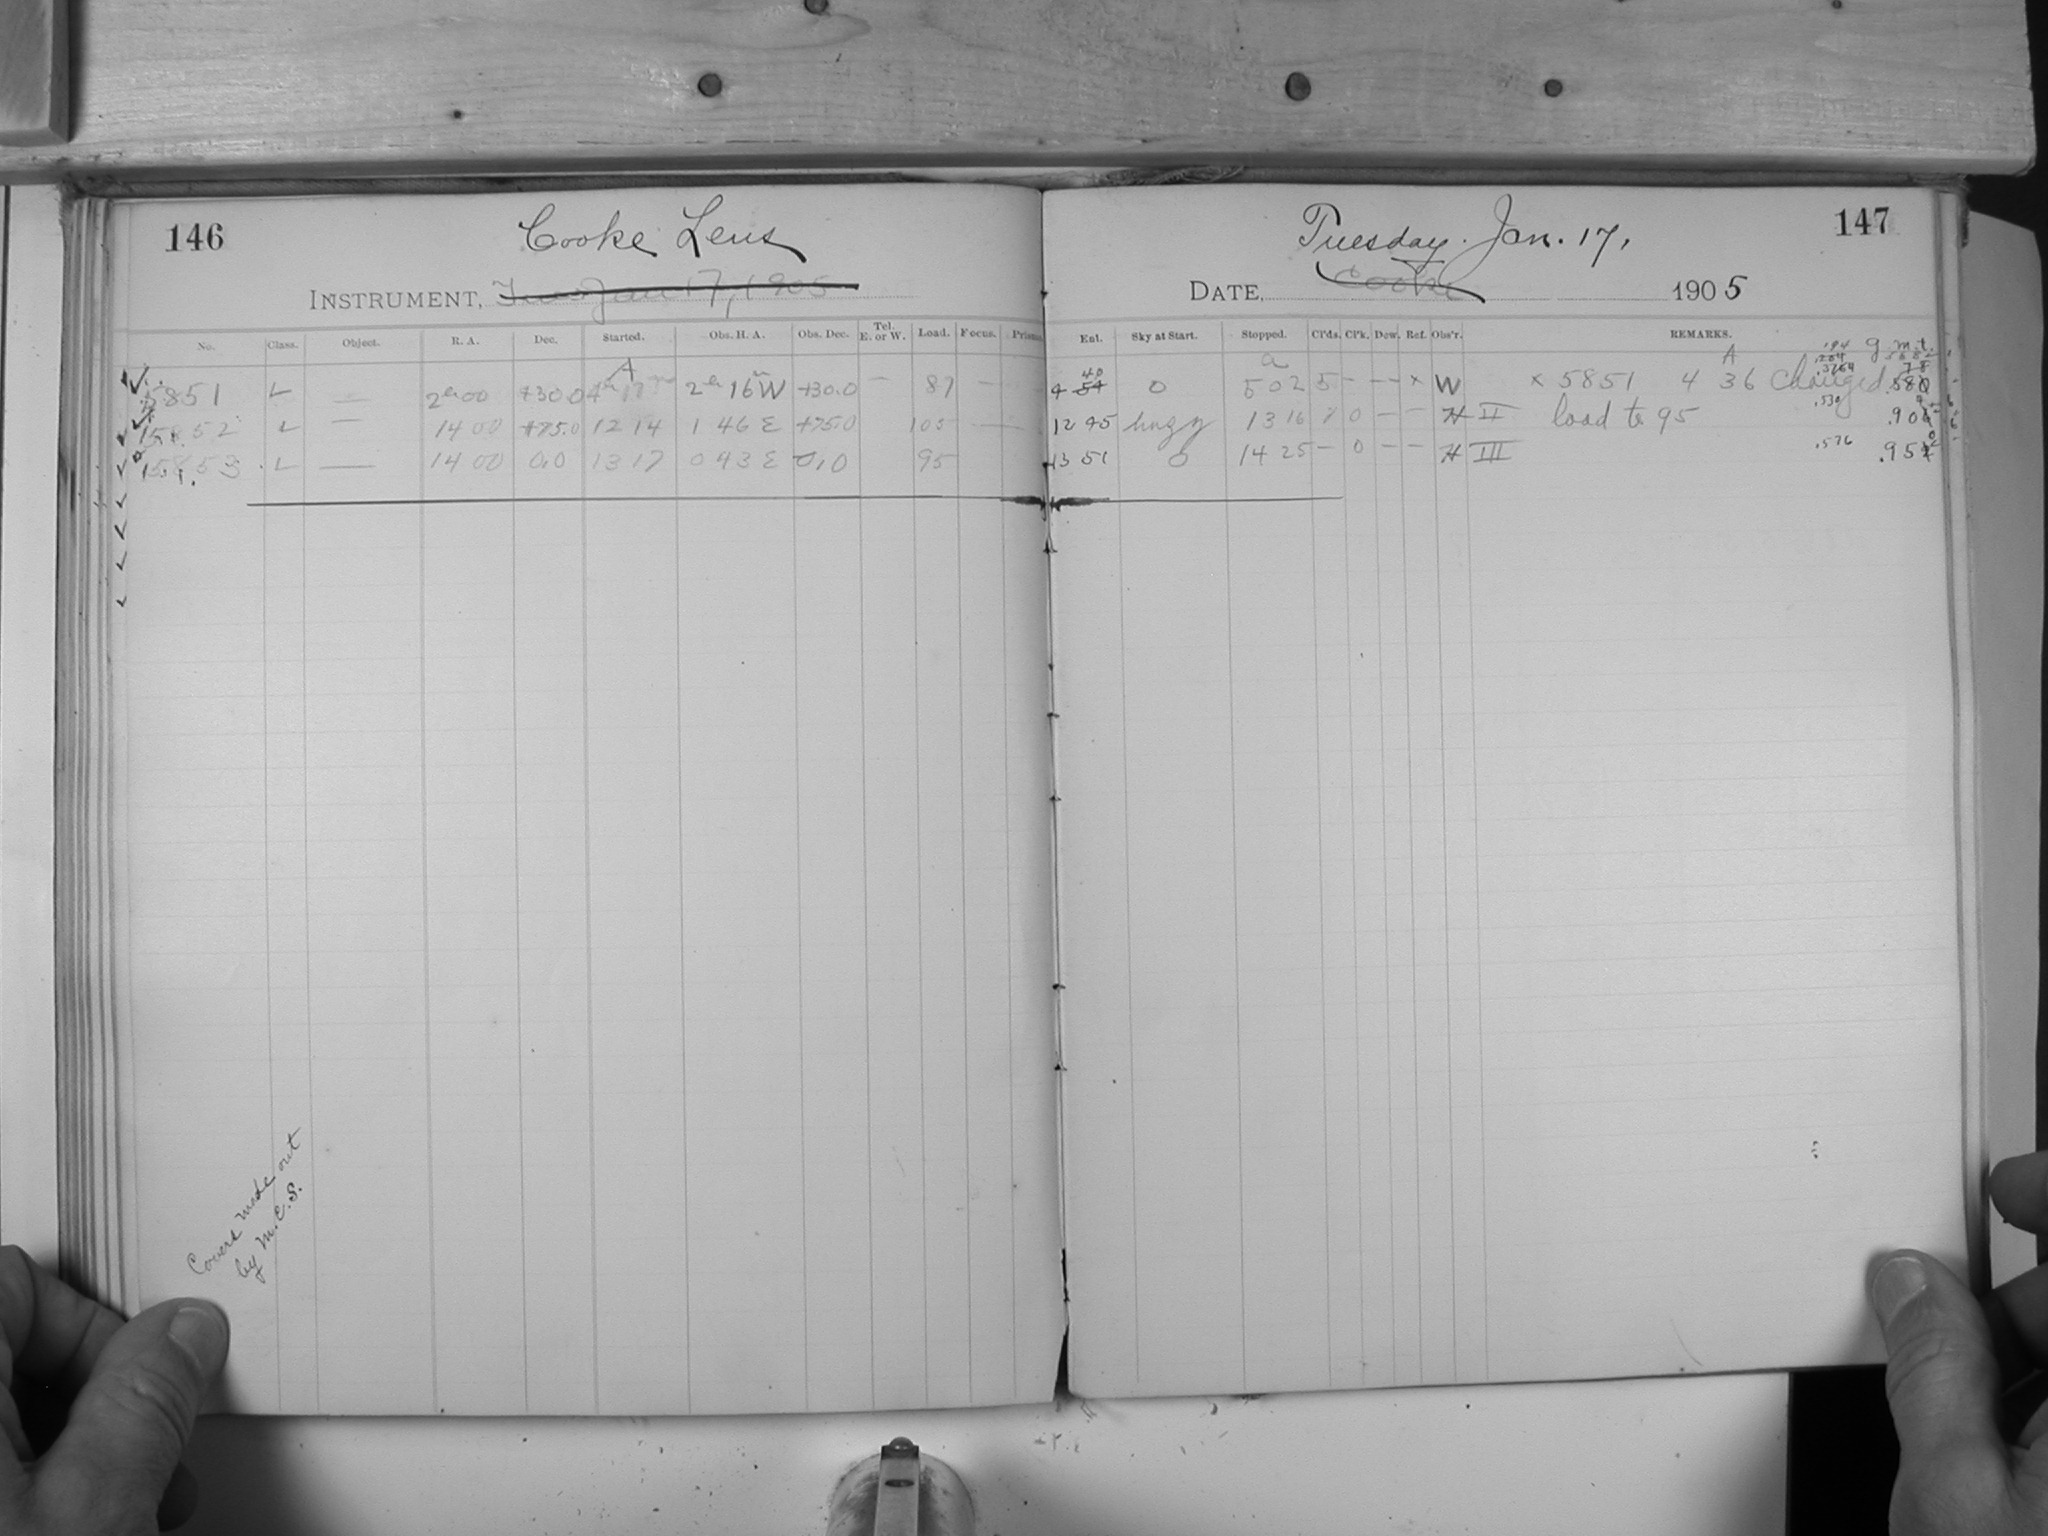 146
Cooke Lens
INSTRUMENT, Tues Jan 17, 1905
No. Class. Object. R. A. Dec. Started. Obs. H. A. Obs. Dec. Tel. E. or W. Load. Focus.
A
5851 L — 2h 00 +30.0 4h 17m 2h 16m W +30.0 — 87 —
15852 L — 14 00 +75.0 12 14 1 46 E +75.0 105 —
15853 L — 14 00 0.0 13 17 0 43 E 0.0 95
Covers made out
by M.E.S.
147
Tuesday. Jan. 17,
DATE, Cooke 1905
Ent. Sky at Start. Stopped. Cl'ds. Cl'k. Dew. Ref. Obs'r. REMARKS.
g.m.t.
a A
40
4 54 0 5 02 5 — — — x W x 5851 4 36 Changed
12 45 hazy 13 16 0 — — H II load to 95
13 51 0 14 25 — 0 — — H III .576